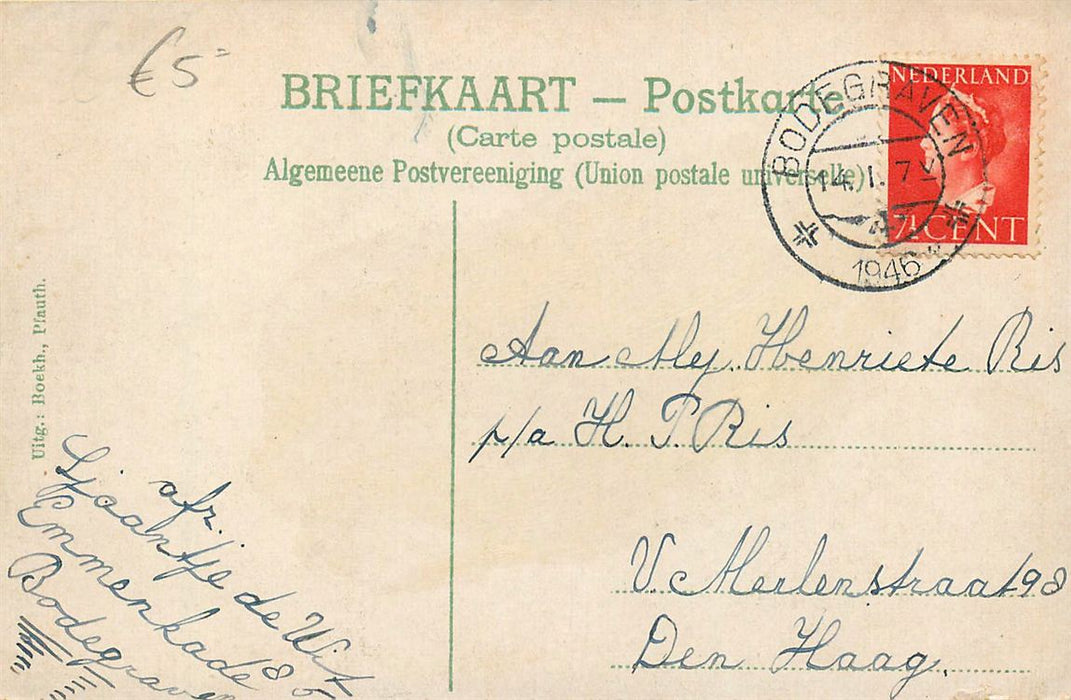 €5
BRIEFKAART — Postkarte
(Carte postale)
Algemeene Postvereeniging (Union postale universelle)
NEDERLAND
7½ CENT
BODEGRAVEN
14. I. 7
1946
Uitg.: Boekh., Pfauth.
Aan Mej. Henriete Ris
p/a H. P. Ris
V. Merlenstraat 98
Den Haag.
afz.
Sjaantje de Wit
Emmenkade 86
Bodegraven